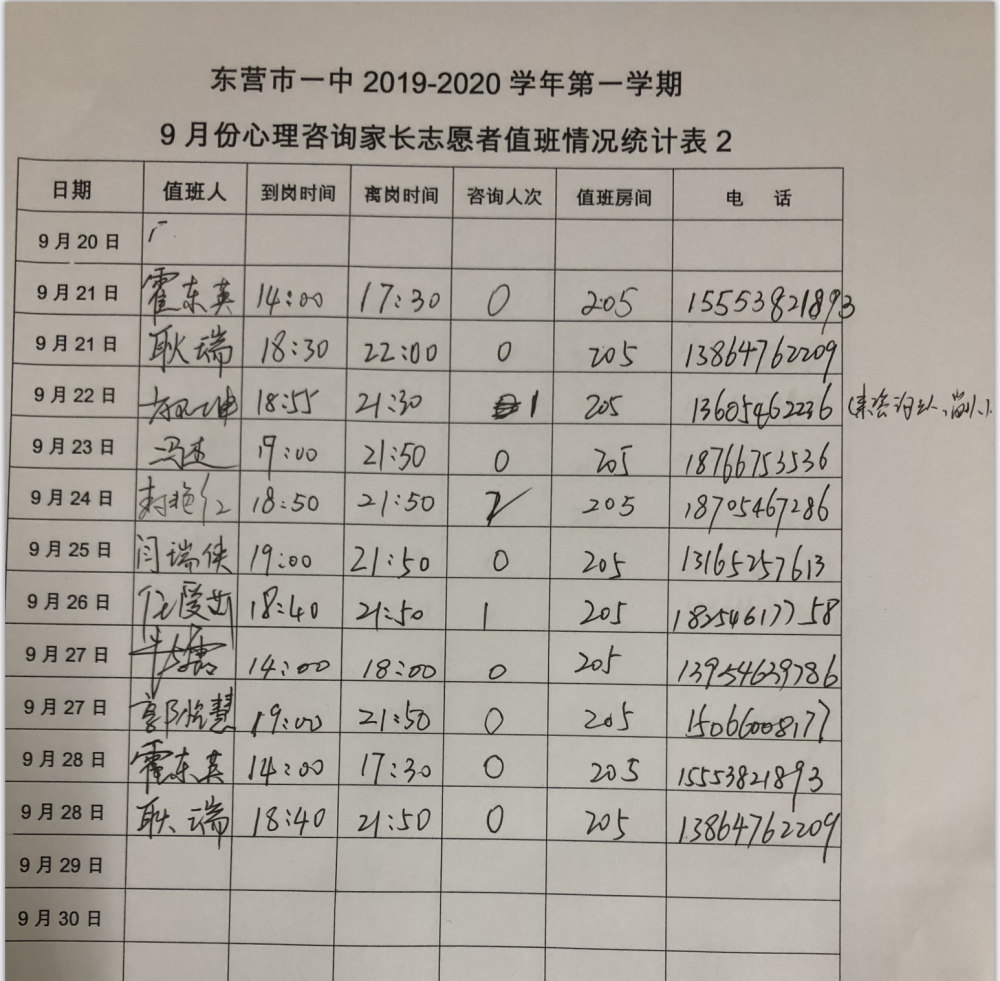 东营市一中 2019-2020 学年第一学期
9 月份心理咨询家长志愿者值班情况统计表 2
日期 值班人 到岗时间 离岗时间 咨询人次 值班房间 电 话
9 月 20 日
9 月 21 日 霍东英 14:00 17:30 0 205 15553821893
9 月 21 日 耿瑞 18:30 22:00 0 205 13864762209
9 月 22 日 18:55 21:30 1 205 13605462236
9 月 23 日 冯杰 19:00 21:50 0 205 18766753536
9 月 24 日 18:50 21:50 2 205 18705467286
9 月 25 日 闫瑞侠 19:00 21:50 0 205 13165257613
9 月 26 日 18:40 21:50 1 205 18254617758
9 月 27 日 14:00 18:00 0 205 13954639786
9 月 27 日 19:00 21:50 0 205 15066008177
9 月 28 日 霍东英 14:00 17:30 0 205 1553821893
9 月 28 日 耿瑞 18:40 21:50 0 205 13864762209
9 月 29 日
9 月 30 日